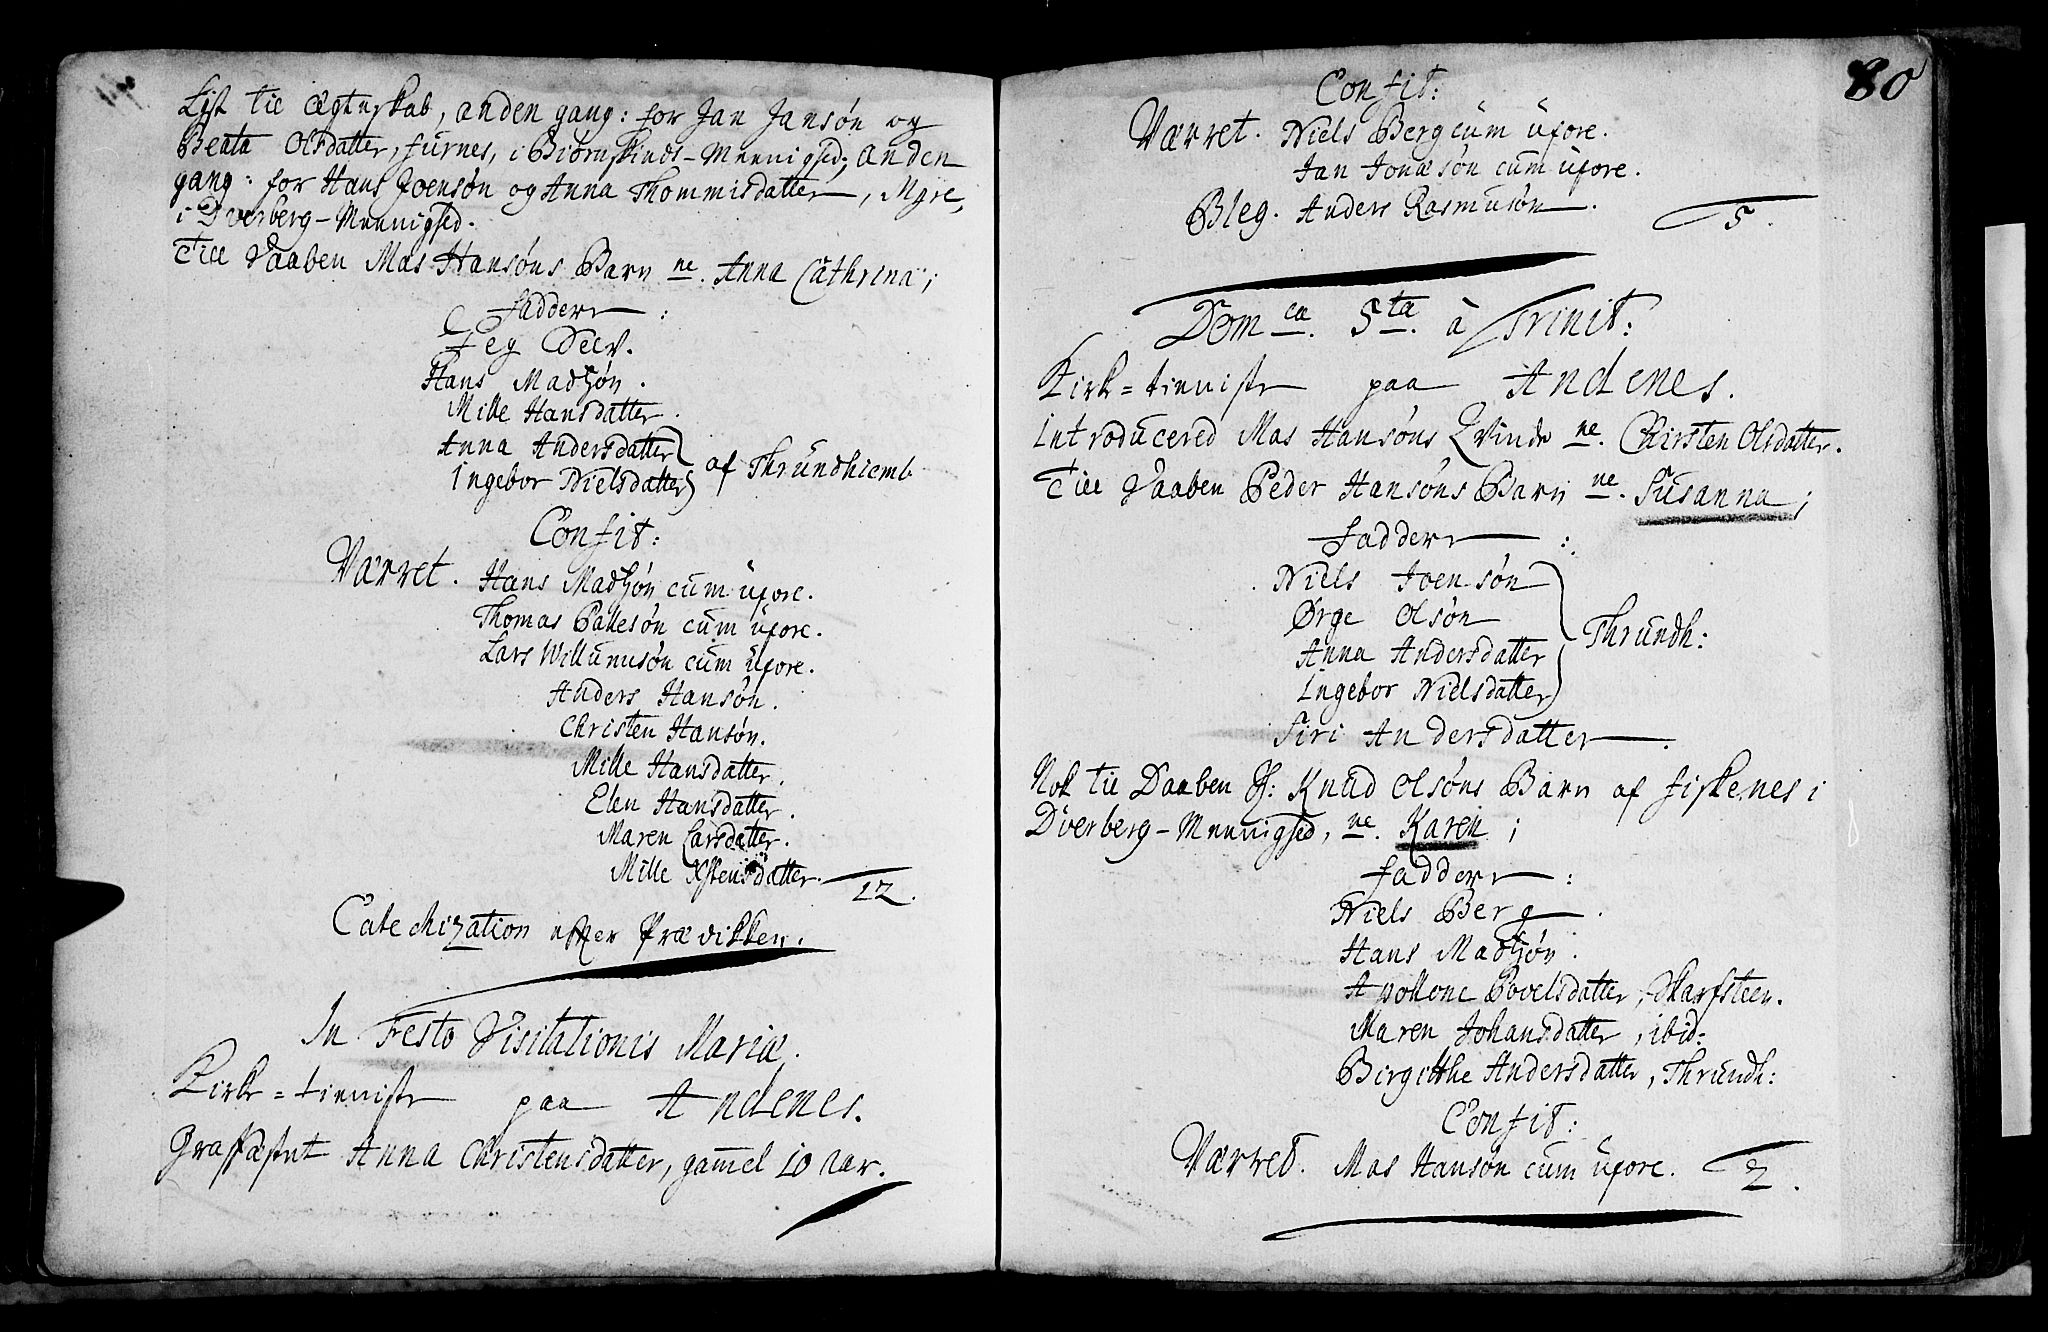 Lyst til Ægteskab, anden gang: for Jan Jansøn og
Beata Olsdatter, Furnes, i Biørnskinds-Meenighed; anden
gang: for Hans Joensøn og Anna Thommisdatter, Myre,
i Dverberg-Meenighed.
Till Daaben Mas Hansøns Barn ne. Anna Cathrina;
Faddere:
Jeg Selv.
Hans Madsøn.
Mille Hansdatter.
Anna Andersdatter
Ingebor Nielsdatter } af Thrundhiemb
Confit:
Værret. Hans Madsøn cum uxore.
Thomas Pallesøn cum uxore.
Lars Willumsøn cum uxore.
Anders Hansøn.
Christen Hansøn.
Mille Hansdatter.
Elen Hansdatter.
Maren Larsdatter.
Mille Xstensdatter. 12.
Catechization efter Prædikken.
In Festo Visitationis Mariæ.
Kirke=tieniste paa Andenes.
Græsfæstet Anna Christensdatter, gamel 10 aar.
80
Confit:
Værret. Niels Berg cum uxore.
Jan Jonæsøn cum uxore.
Bleg. Anders Rasmusøn. 5.
Domca. 5ta. à Trinit:
Kirke=tieniste paa Andenes.
Introducered Mas Hansøns Qvinde ne. Chirsten Olsdatter.
Till Daaben Peder Hansøns Barn ne. Susanna;
Faddere:
Niels Joensøn
Ørge Olsøn
Anna Andersdatter } Thrundh:
Ingebor Nielsdatter
Siri Andersdatter.
Nok til Daaben H: Knud Olsøns Barn af Fiskenes i
Dverberg-Meenighed, ne. Karen;
Faddere:
Niels Berg.
Hans Madsøn.
Apollone Povelsdatter, Skarfsteen.
Maren Johansdatter, ibid:
Birgitthe Andersdatter, Thrundh:
Confit:
Værret. Mas Hansøn cum uxore. 2.